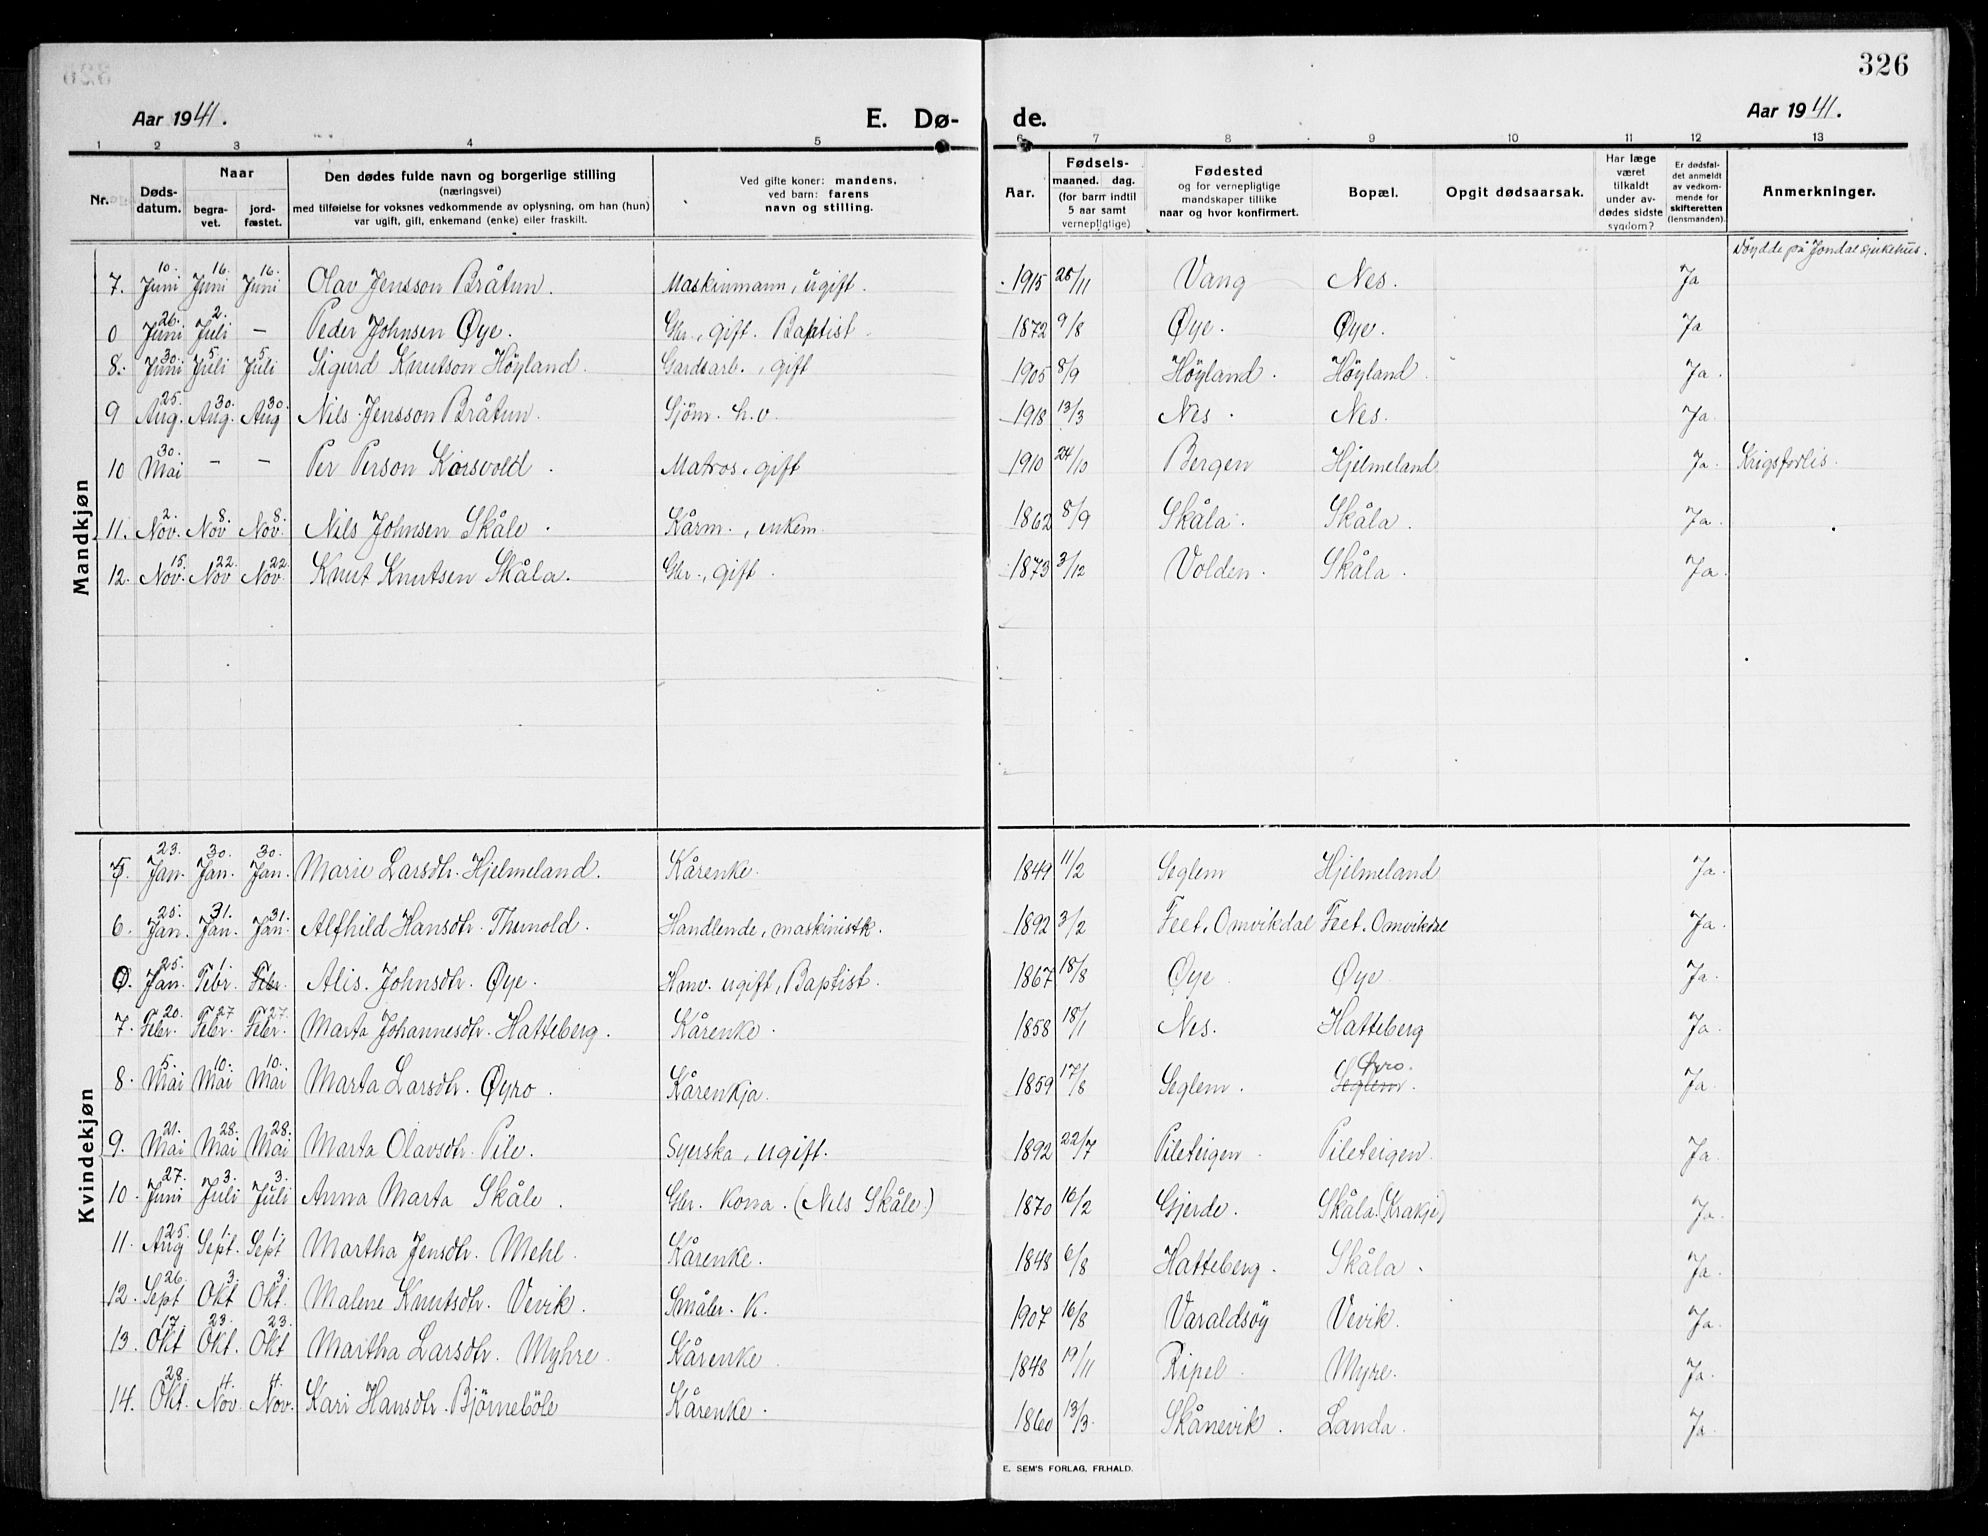 326
Aar 1941.
E. Dø-
de.
Aar 1941.
1 2 3 4 5 6 7 8 9 10 11 12 13
Nr.
Døds-
datum.
Naar
begra-
vet.
jord-
fæstet.
Den dødes fulde navn og borgerlige stilling
(næringsvei)
med tilføielse for voksnes vedkommende av oplysning, om han (hun)
var ugift, gift, enkemand (enke) eller fraskilt.
Ved gifte koner: mandens.
ved barn: farens
navn og stilling.
Aar.
Fødsels-
maaned. dag.
(for barn indtil
5 aar samt
vernepligtige)
Fødested
og for vernepligtige
mandskaper tillike
naar og hvor konfirmert.
Bopæl.
Opgit dødsaarsak.
Har læge
været
tilkaldt
under av-
dødes sidste
sygdom?
Er dødsfal-
det anmeldt
av vedkom-
mende for
skifteretten
(lensmanden).
Anmerkninger.
Mandkjøn
7. 10. Juni 16. Juni 16. Juni Olav Jensson Bråtun. Maskinmann, ugift. 1915 28/11 Vang Nes. Ja Döydde på Jondal sjukehus.
0 26. Juni 2. Juli — Peder Johnsen Øye. Gbr., gift. Baptist. 1872 9/8 Øye. Øye. Ja
8. 30. Juni 5. Juli 5. Juli Sigurd Knutson Höyland. Gardsarb., gift 1905 8/9 Höyland. Höyland. Ja.
9 25. Aug. 30. Aug. 30. Aug. Nils Jensson Bråtun. Sjöm. h.v. 1918 13/3 Nes. Nes. Ja.
10 30. Mai — — Per Person Korsvold. Matros, gift 1910 24/10 Bergen Hjelmeland Ja. Krigsforlis.
11. 2. Nov. 8. Nov 8. Nov. Nils Johnsen Skåle. Kårm., enkem. 1862 8/9 Skåla. Skåla. Ja.
12. 15. Nov. 22. Nov 22. Nov. Knut Knutsen Skåla. Gbr., gift. 1873 3/12 Volden. Skåla. Ja.
Kvindekjøn
5 23. Jan. 30. Jan. 30. Jan. Marie Larsdtr. Hjelmeland. Kårenke. 1849 11/2 Seglem Hjelmeland Ja.
6. 25. Jan. 31. Jan. 31. Jan. Alfhild Hansdtr. Thunold. Handlende, maskinistk. 1892 3/2 Feet, Omvikdal Feet, Omvikdal Ja.
0. 25. Jan. 1. Febr. Febr. Alis. Johnsdtr. Øye. Hmv. ugift, Baptist. 1867 18/8 Øye Øye. Ja.
7. 20. Febr. 27 Febr. 27. Febr. Marta Johannesdtr. Hatteberg. Kårenke. 1858 18/1 Nes. Hatteberg Ja.
8. 5. Mai 10. Mai 10. Mai Marta Larsdtr. Øyro. Kårenkja. 1859 17/8 Seglem. Seglem. Øyro. Ja.
9. 21. Mai 28. Mai 28. Mai Marta Olavsdtr. Pile. Syerska, ugift. 1892 22/7 Pileteigen. Pileteigen. Ja.
10. 27. Juni 3. Juli 3. Juli Anna Marta Skåle. Gbr. kona. (Nils Skåle.) 1870 16/2 Gjerde. Skåla. (Krakje) Ja.
11. 25. Aug 1. Sept. 1. Sept Martha Jensdtr. Mehl. Kårenke. 1848 6/8 Hatteberg. Skåla. Ja.
12. 26. Sept 3. Okt 3. Okt. Malene Knutsdtr. Vevik. Småbr. K. 1907 16/8 Varaldsöy Vevik. Ja.
13. 17. Okt 23. Okt. 23. Okt Martha Larsdtr. Myhre. Kårenke. 1848 19/11 Ripel. Myre. Ja.
14. 28. Okt. 4. Nov 4. Nov. Kari Hansdtr. Björneböle Kårenke. 1860 13/3. Skånevik. Landa. Ja.
E. SEM'S FORLAG, FR.HALD.